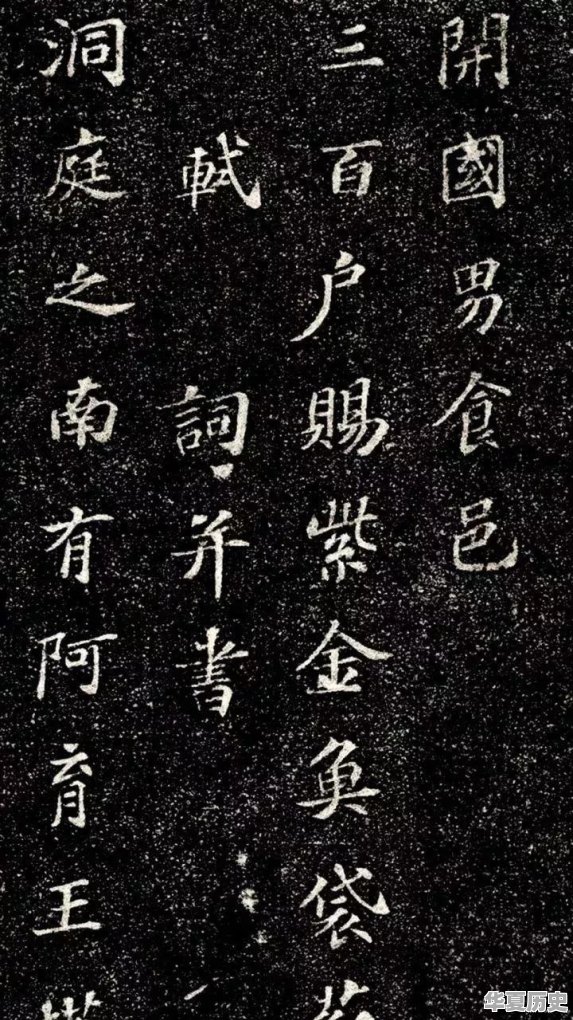 開國男食邑
三百户賜紫金魚袋
軾詞并書
洞庭之南有阿育王
华夏历史